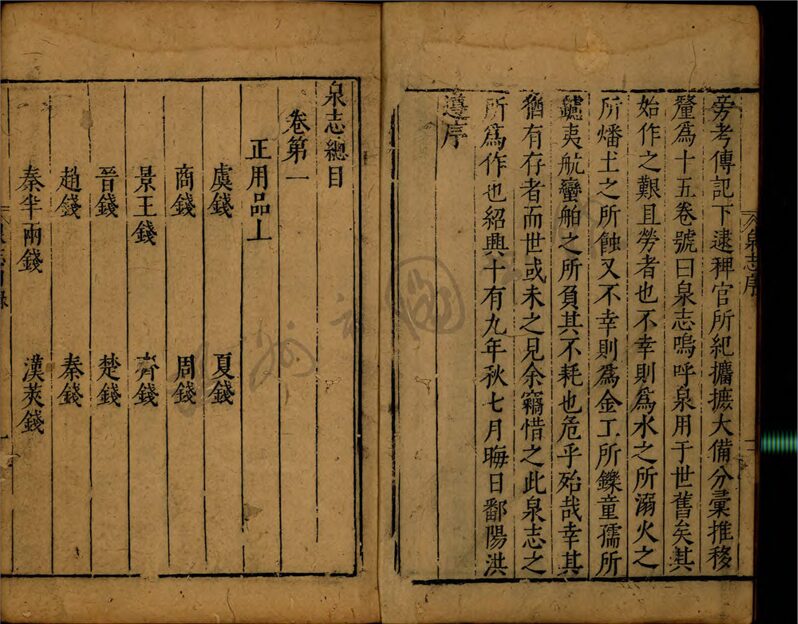 旁考傳記下逮稗官所紀攟摭大備分彚推移
釐爲十五卷號曰泉志嗚呼泉用于世舊矣其
始作之艱且勞者也不幸則爲水之所溺火之
所燔土之所蝕又不幸則爲金工所鑠童孺所
鑢夷航蠻舶之所負其不耗也危乎殆哉幸其
猶有存者而世或未之見余竊惜之此泉志之
所爲作也紹興十有九年秋七月晦日鄱陽洪
遵序
泉志序
泉志總目
卷第一
正用品上
虞錢 夏錢
商錢 周錢
景王錢 齊錢
晉錢 楚錢
趙錢 秦錢
秦半兩錢 漢莢錢